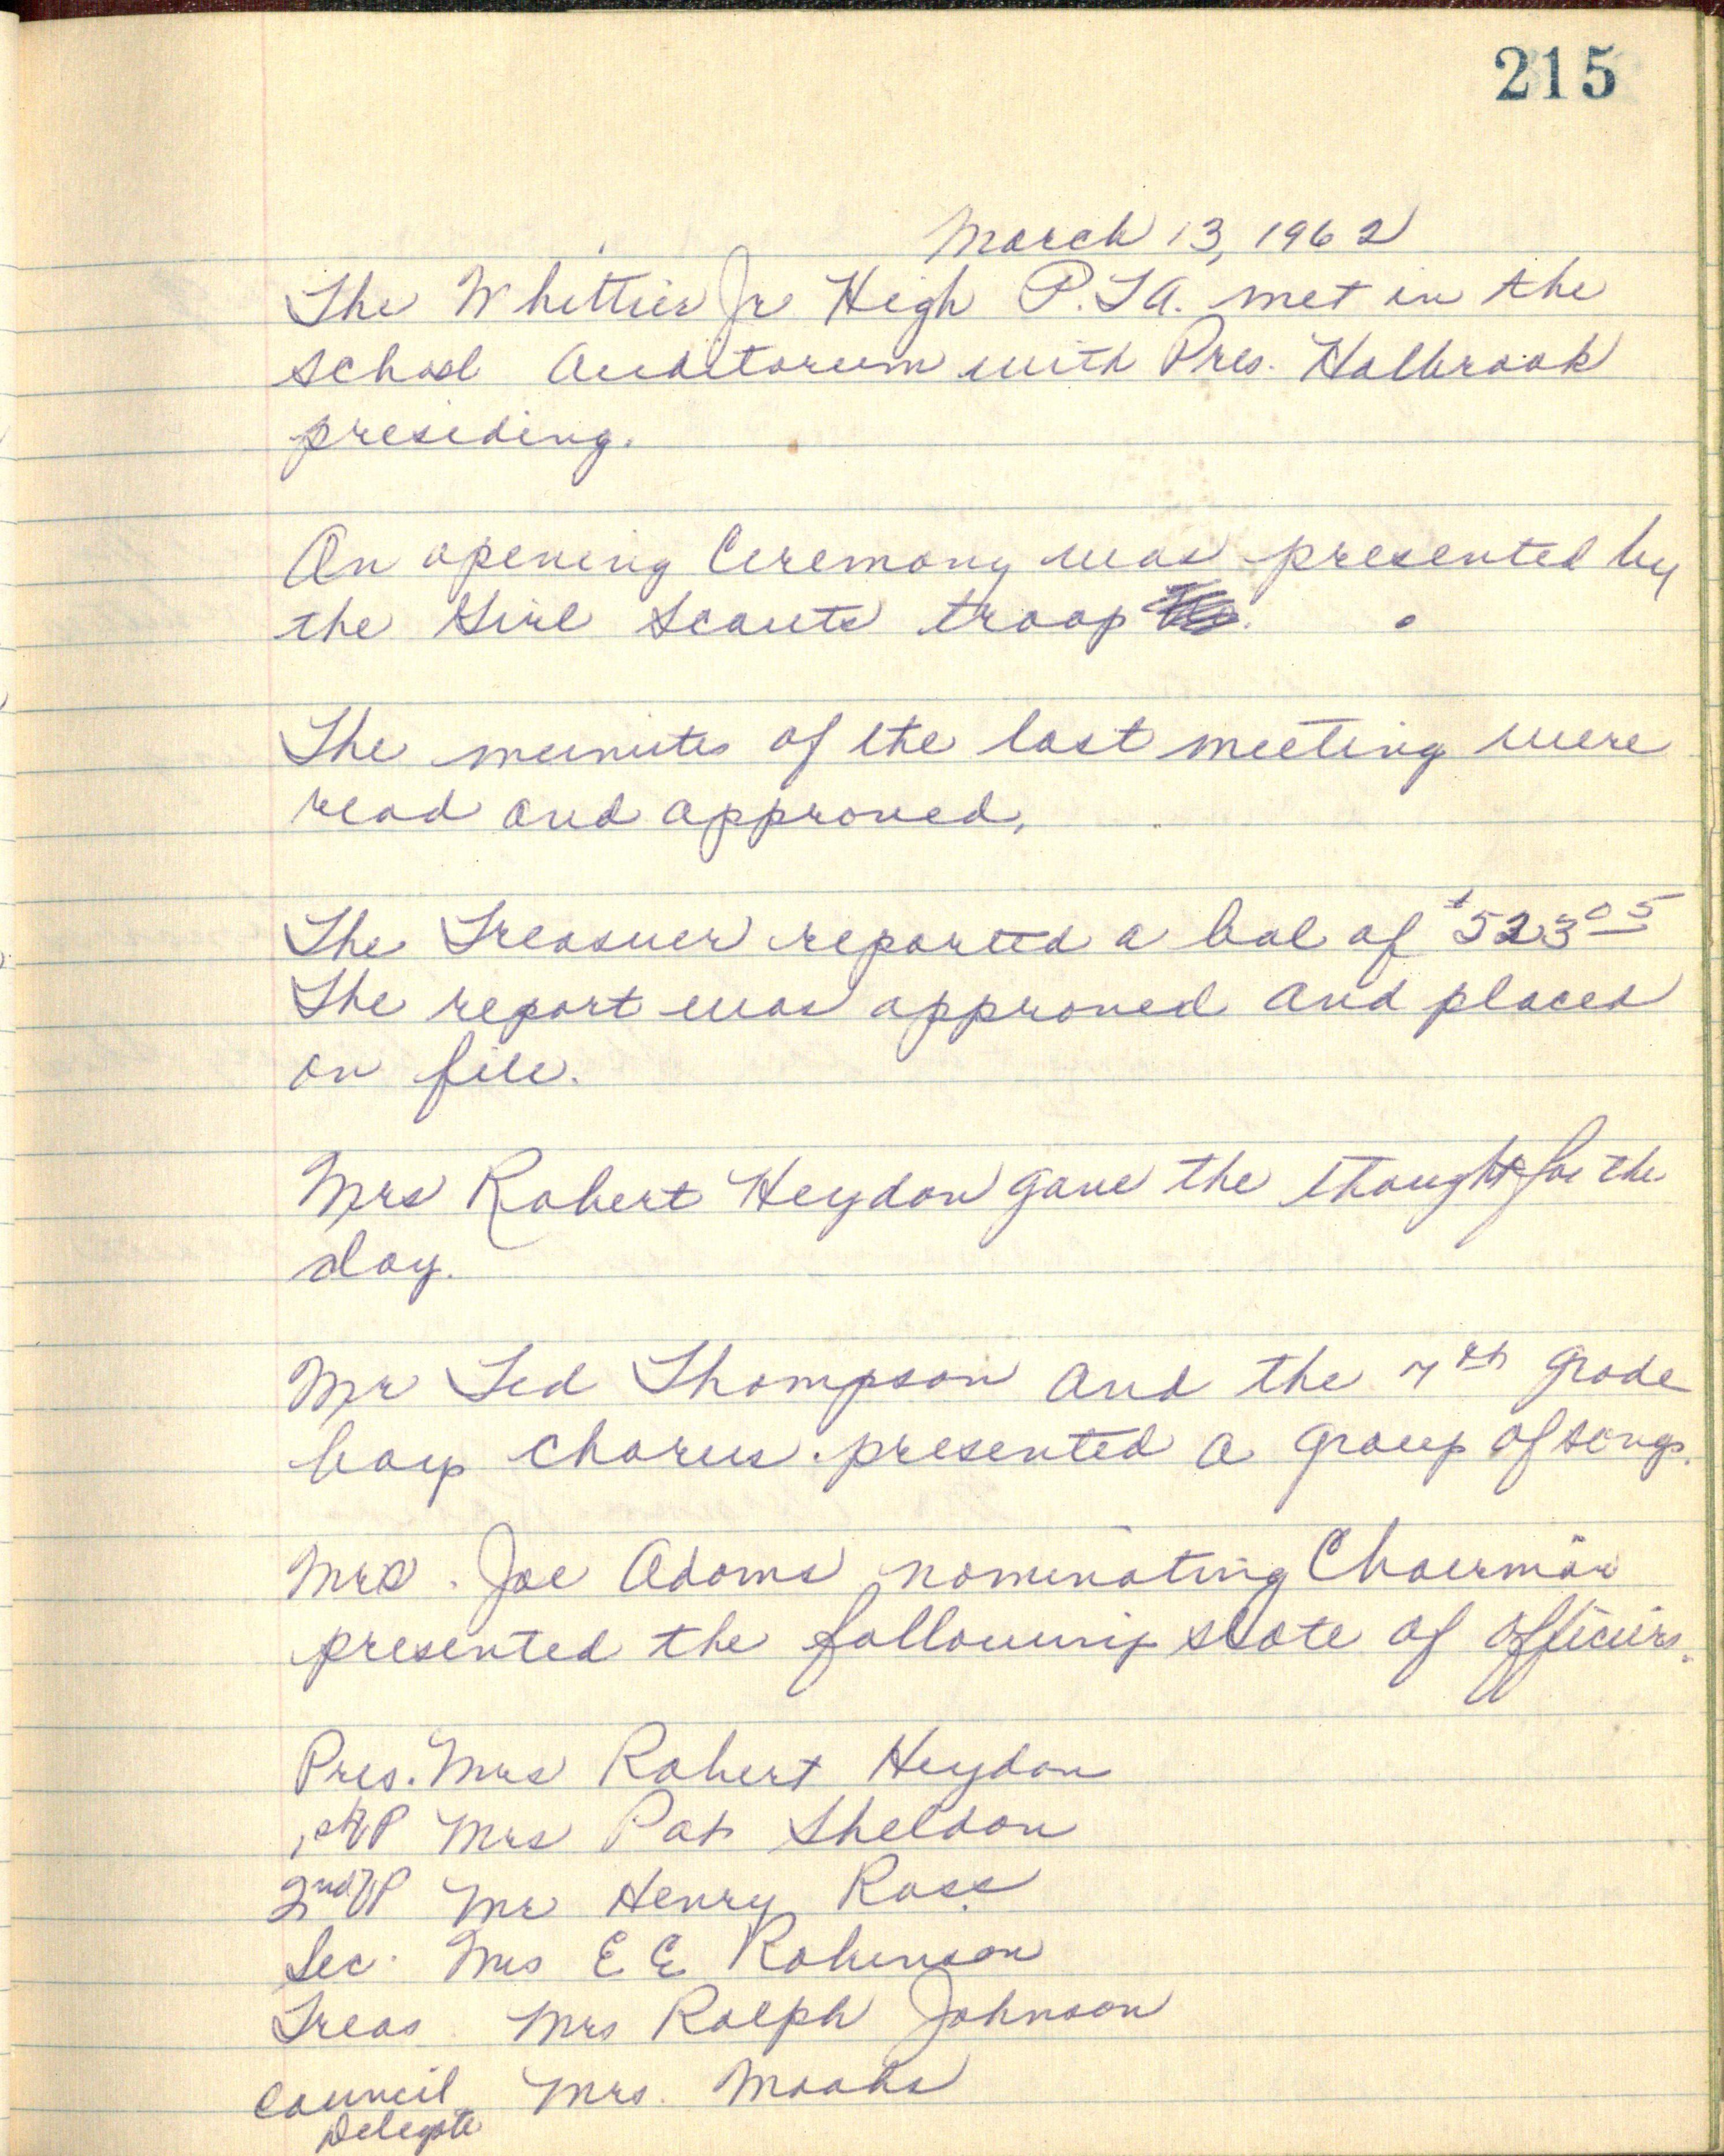 215
March 13, 1962
The Whittier Jr High P.T.A. met in the
school auditorum with Pres. Holbrook
presiding.
An opening Ceremony was presented by
the Girl Scouts troop
The minutes of the last meeting were
read and approved,
The Treasuer reported a bal of $523 05
The report was approved and placed
on file.
Mrs Robert Heydon gave the thought for the
day.
Mr Ted Thompson and the 7th grade
boys chorus presented a group of songs.
Mrs. Joe Adams nominating Chairman
presented the following slate of officers.
Pres. Mrs Robert Heydon
1st VP Mrs Pat Sheldon
2nd VP Mr Henry Ross
Sec. Mrs E E Robinson
Treas. Mrs Ralph Johnson
Council Mrs.
Delegate